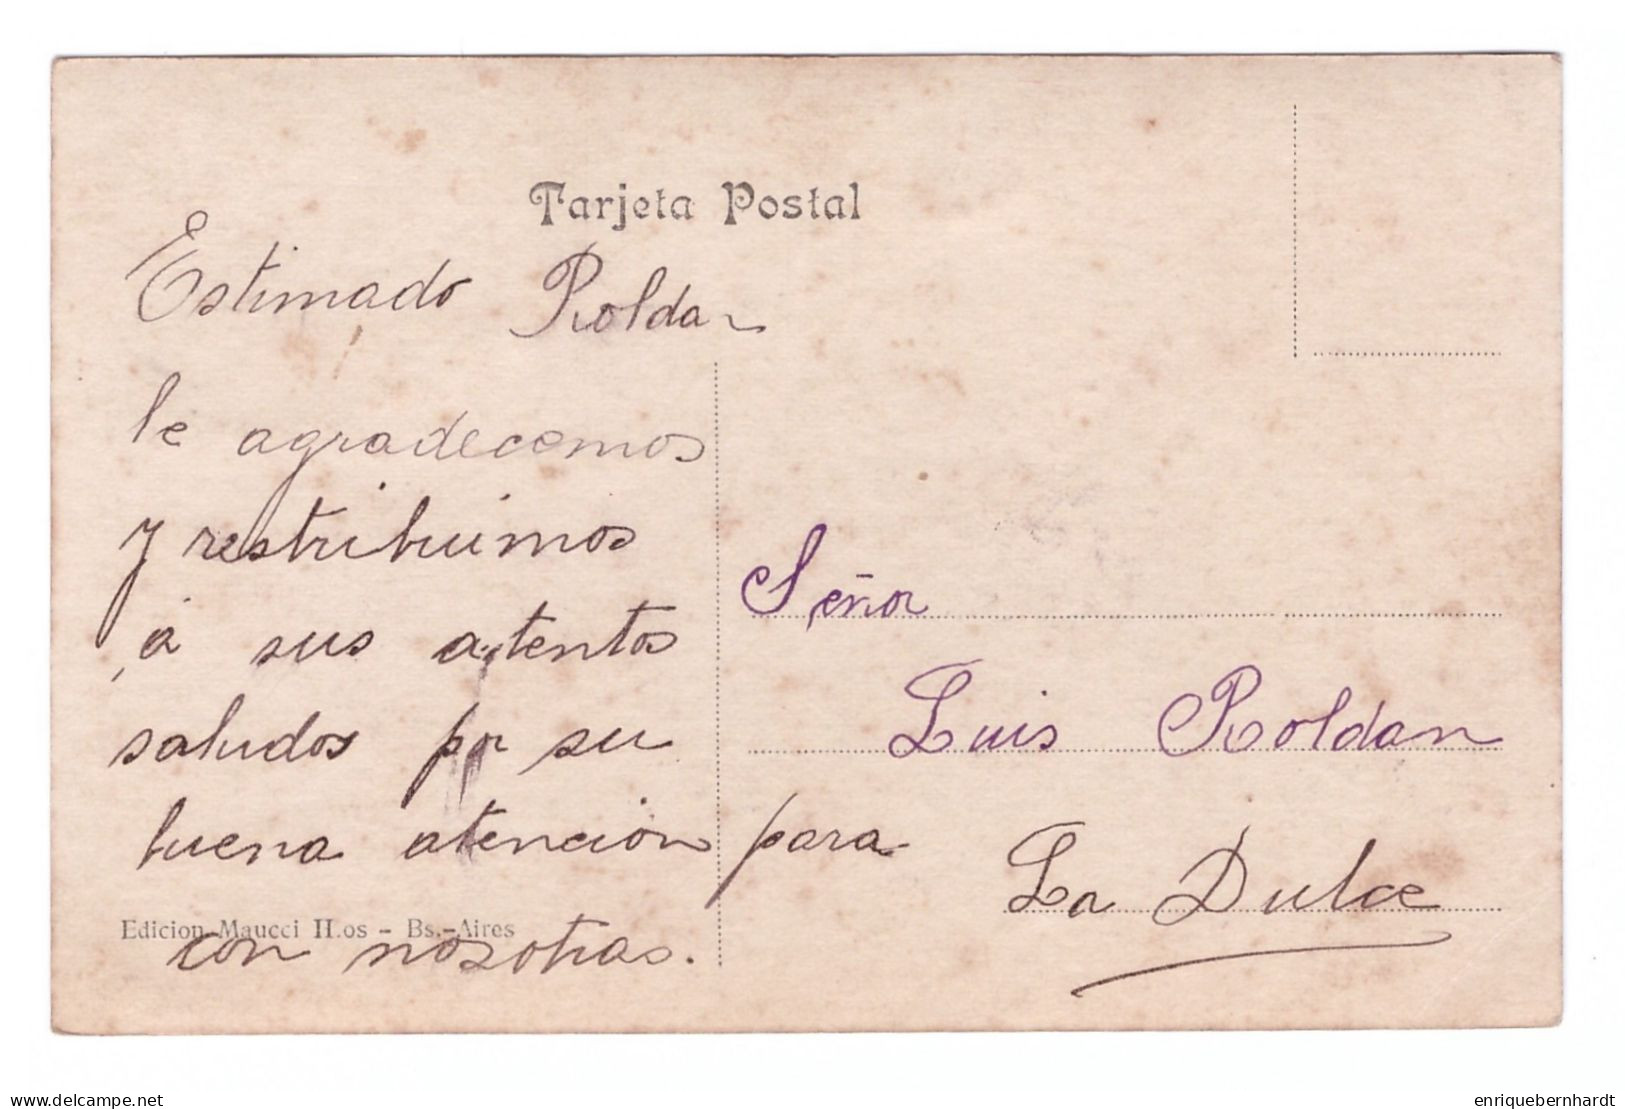 Tarjeta Postal
Estimado Roldan
le agradecemos
y restribuimos
á sus atentos
saludos por su
buena atencion
con nosotras.
Edicion Maucci H.os - Bs.-Aires
Señor
Luis Roldan
para
La Dulce
delcampe.net
enriquebernhardt